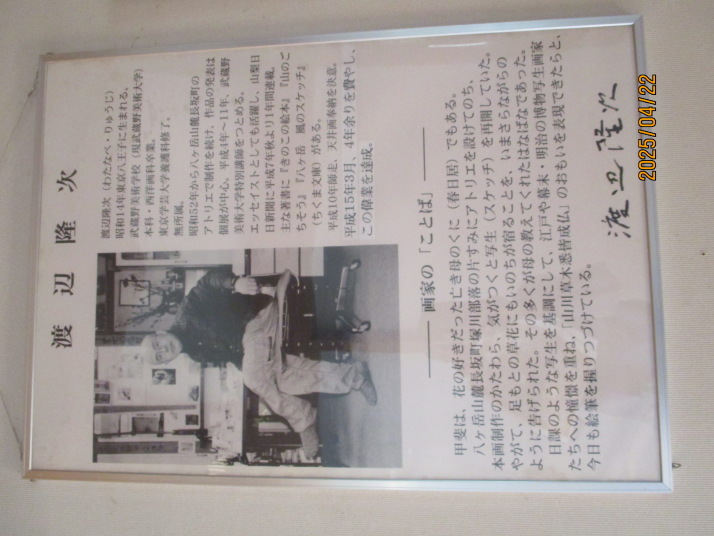 渡辺隆次
渡辺隆次（わたなべ・りゅうじ）
昭和14年東京八王子に生まれる。
武蔵野美術学校（現武蔵野美術大学）
本科・西洋画科卒業。
東京学芸大学養護科修了。
無所属。
昭和52年から八ヶ岳山麓長坂町の
アトリエで制作を続け、作品の発表は
個展が中心。平成4年〜11年、武蔵野
美術大学特別講師をつとめる。
エッセイストとしても活躍し、山梨日
日新聞に平成7年秋より1年間連載。
主な著書に『きのこの絵本』『山のご
ちそう』『八ヶ岳 風のスケッチ』
（ちくま文庫）がある。
平成10年師走、天井画奉納を決意。
平成15年3月、4年余りを費やし、
この偉業を達成。
画家の「ことば」
甲斐は、花の好きだった亡き母のくに（春日居）でもある。
八ヶ岳山麓長坂町塚川部落の片すみにアトリエを設けてのち、
本画制作のかたわら、気がつくと写生（スケッチ）を再開していた。
やがて、足もとの草花にもいのちが宿ることを、いまさらながらの
ように告げられた。その多くが母の教えてくれたはなばなであった。
日課のような写生を基調にして、江戸や幕末・明治の博物写生画家
たちへの憧憬を重ね、「山川草木悉皆成仏」のおもいを表現できたらと、
今日も絵筆を握りつづけている。
渡辺隆次
2025/04/22